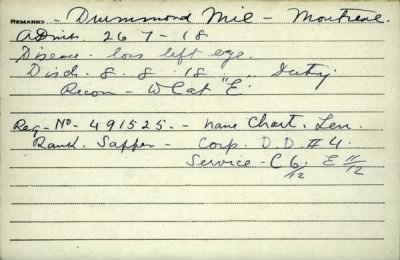 REMARKS - Drummond Mil - Montreal.
Admit. 26-7-18
Disease - loss left eye.
Disch. 8.8.18 " Duty.
Recom - W Cat "E".
Reg - No - 491525. - name Chart. Len.
Rank. Sapper - Corp. D.D. #4.
Service - C 6/12 E 11/12